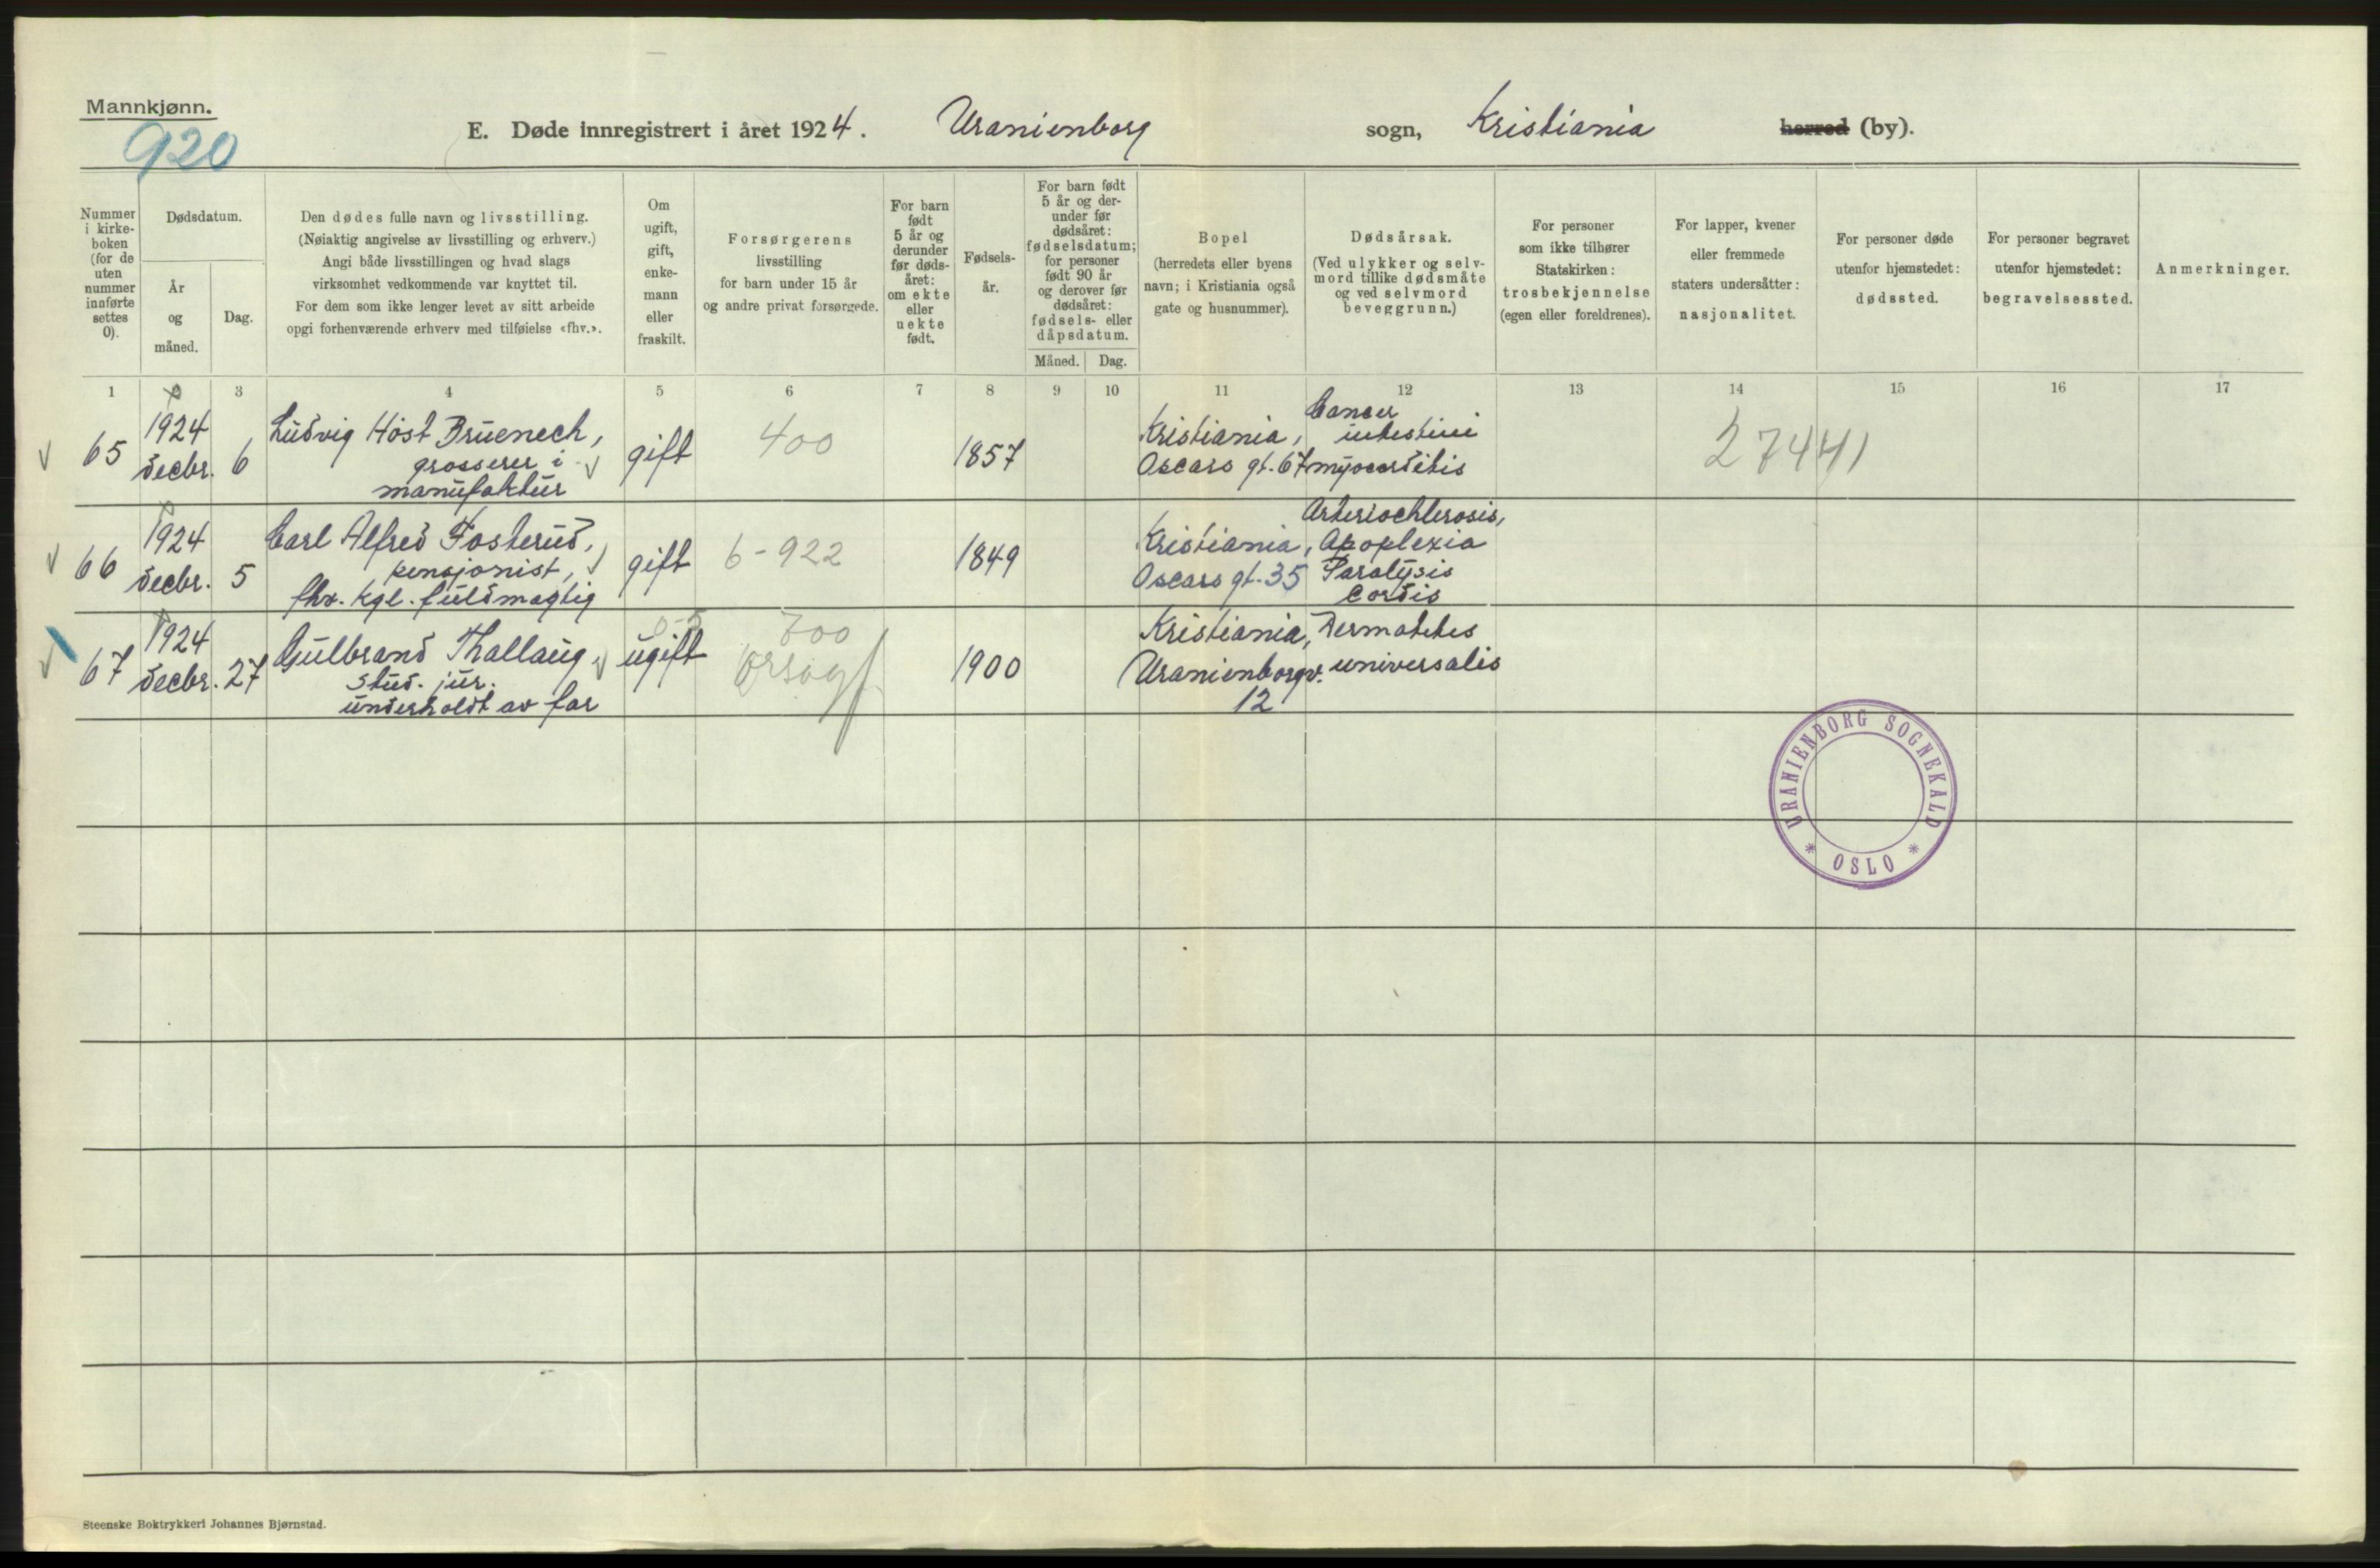 Mannkjønn.
920
E. Døde innregistrert i året 1924. Uranienborg sogn, Kristiania herred (by).
Nummer i kirke-boken (for de uten nummer innførte settes 0).
Dødsdatum.
År og måned.
Dag.
Den dødes fulle navn og livsstilling.
(Nøiaktig angivelse av livsstilling og erhverv.)
Angi både livsstillingen og hvad slags
virksomhet vedkommende var knyttet til.
For dem som ikke lenger levet av sitt arbeide
opgi forhenværende erhverv med tilføielse «fhv.».
Om ugift, gift, enke-mann eller fraskilt.
Forsørgerens
livsstilling
for barn under 15 år
og andre privat forsørgede.
For barn født 5 år og derunder før døds-året: om ekte eller uekte født.
Fødsels-år.
For barn født 5 år og der-under før dødsåret: fødselsdatum; for personer født 90 år og derover før dødsåret: fødsels- eller dåpsdatum.
Måned. Dag.
Bopel
(herredets eller byens
navn; i Kristiania også
gate og husnummer).
Dødsårsak.
(Ved ulykker og selv-
mord tillike dødsmåte
og ved selvmord
beveggrunn.)
For personer
som ikke tilhører
Statskirken:
trosbekjennelse
(egen eller foreldrenes).
For lapper, kvener
eller fremmede
staters undersåtter:
nasjonalitet.
For personer døde
utenfor hjemstedet:
dødssted.
For personer begravet
utenfor hjemstedet:
begravelsessted.
Anmerkninger.
1 3 4 5 6 7 8 9 10 11 12 13 14 15 16 17
65 1924 decbr. 6
Ludvig Høst Bruenech,
grosserer i
manufaktur
gift 400 1857
Kristiania,
Oscars gt. 67
Cancer
intestini
myocarditis
27441
66 1924 decbr. 5
Carl Alfred Fosterud,
pensjonist,
fhv. kgl. fuldmagtig
gift 6-922 1849
Kristiania,
Oscars gt. 35
Arteriochlerosis,
Apoplexia
Paralysis
Cordis
67 1924 decbr. 27
Gulbrand Thallaug,
stud. jur.
underholdt av far
ugift 700 1900
Kristiania,
Uranienborgv.
12
Dermatites
universalis
URANIENBORG SOGNEKALD
* OSLO *
Steenske Boktrykkeri Johannes Bjørnstad.